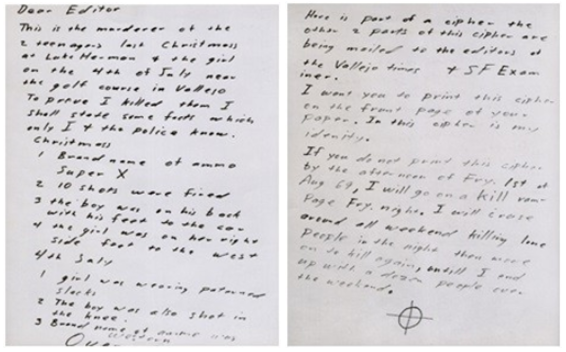 Dear Editor
This is the murderer of the
2 teenagers last Christmass
at Lake Herman & the girl
on the 4th of July near
the golf course in Vallejo
To prove I killed them I
shall state some facts which
only I & the police know.
Christmass
1 Brand name of ammo
Super X
2 10 shots were fired
3 the boy was on his back
with his feet to the car
4 the girl was on her right
side feet to the west
4th July
1 girl was wearing paterned
slacks
2 The boy was also shot in
the knee.
3 Brand name of ammo was
Western
Over
Here is part of a cipher the
other 2 parts of this cipher are
being mailed to the editors of
the Vallejo times & SF Exam
iner.
I want you to print this cipher
on the front page of your
paper. In this cipher is my
idenity.
If you do not print this cipher
by the afternoon of Fry. 1st of
Aug 69, I will go on a kill ram-
Page Fry. night. I will cruse
around all weekend killing lone
people in the night then move
on to kill again, untill I end
up with a dozen people over
the weekend.